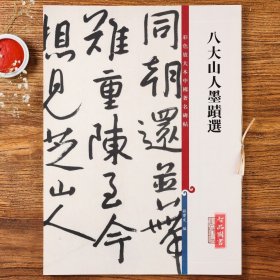 八大山人墨蹟選
彩色放大本中國著名碑帖
同朝還
雖重陳至今
想見芝山人
編